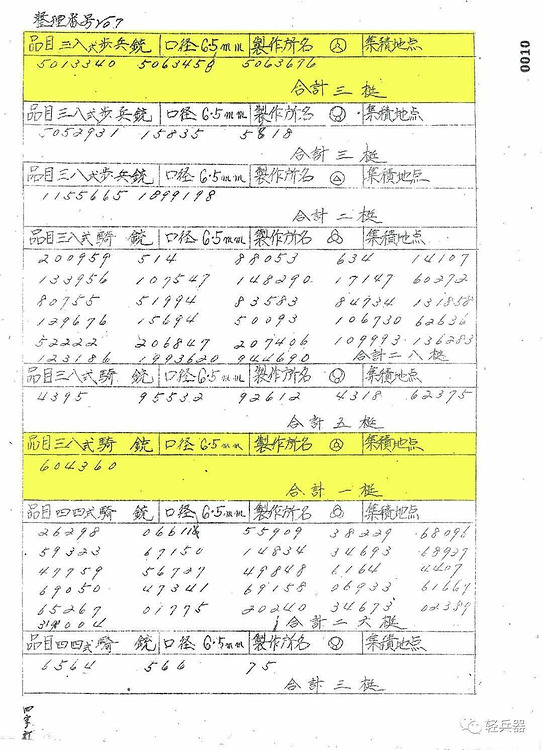 整理番号 No7
0010
品目 三八式歩兵銃 口径 6.5mm 製作所名 集積地点
5013340 5063458 5063676
合計三梃
品目 三八式歩兵銃 口径 6.5mm 製作所名 集積地点
5052931 15835 5818
合計三梃
品目 三八式歩兵銃 口径 6.5mm 製作所名 集積地点
1155665 1899198
合計二梃
品目 三八式騎銃 口径 6.5mm 製作所名 集積地点
200959 514 88053 634 14107
133956 107547 148290 17147 60272
80755 51994 83583 84934 131858
129676 15694 50093 106730 62636
52222 206847 207406 109993 136283
123186 1993620 944690 合計二八梃
品目 三八式騎銃 口径 6.5mm 製作所名 集積地点
4395 95532 92612 4318 62375
合計五梃
品目 三八式騎銃 口径 6.5mm 製作所名 集積地点
604360
合計一梃
品目 四四式騎銃 口径 6.5mm 製作所名 集積地点
26298 55909 38229 68096
59323 67150 14834 34693 68927
47759 56727 49848 1164 4407
69050 47341 69158 06933 61667
65267 01775 20240 34673 02389
合計二六梃
品目 四四式騎銃 口径 6.5mm 製作所名 集積地点
6564 566 75
合計三梃
轻兵器